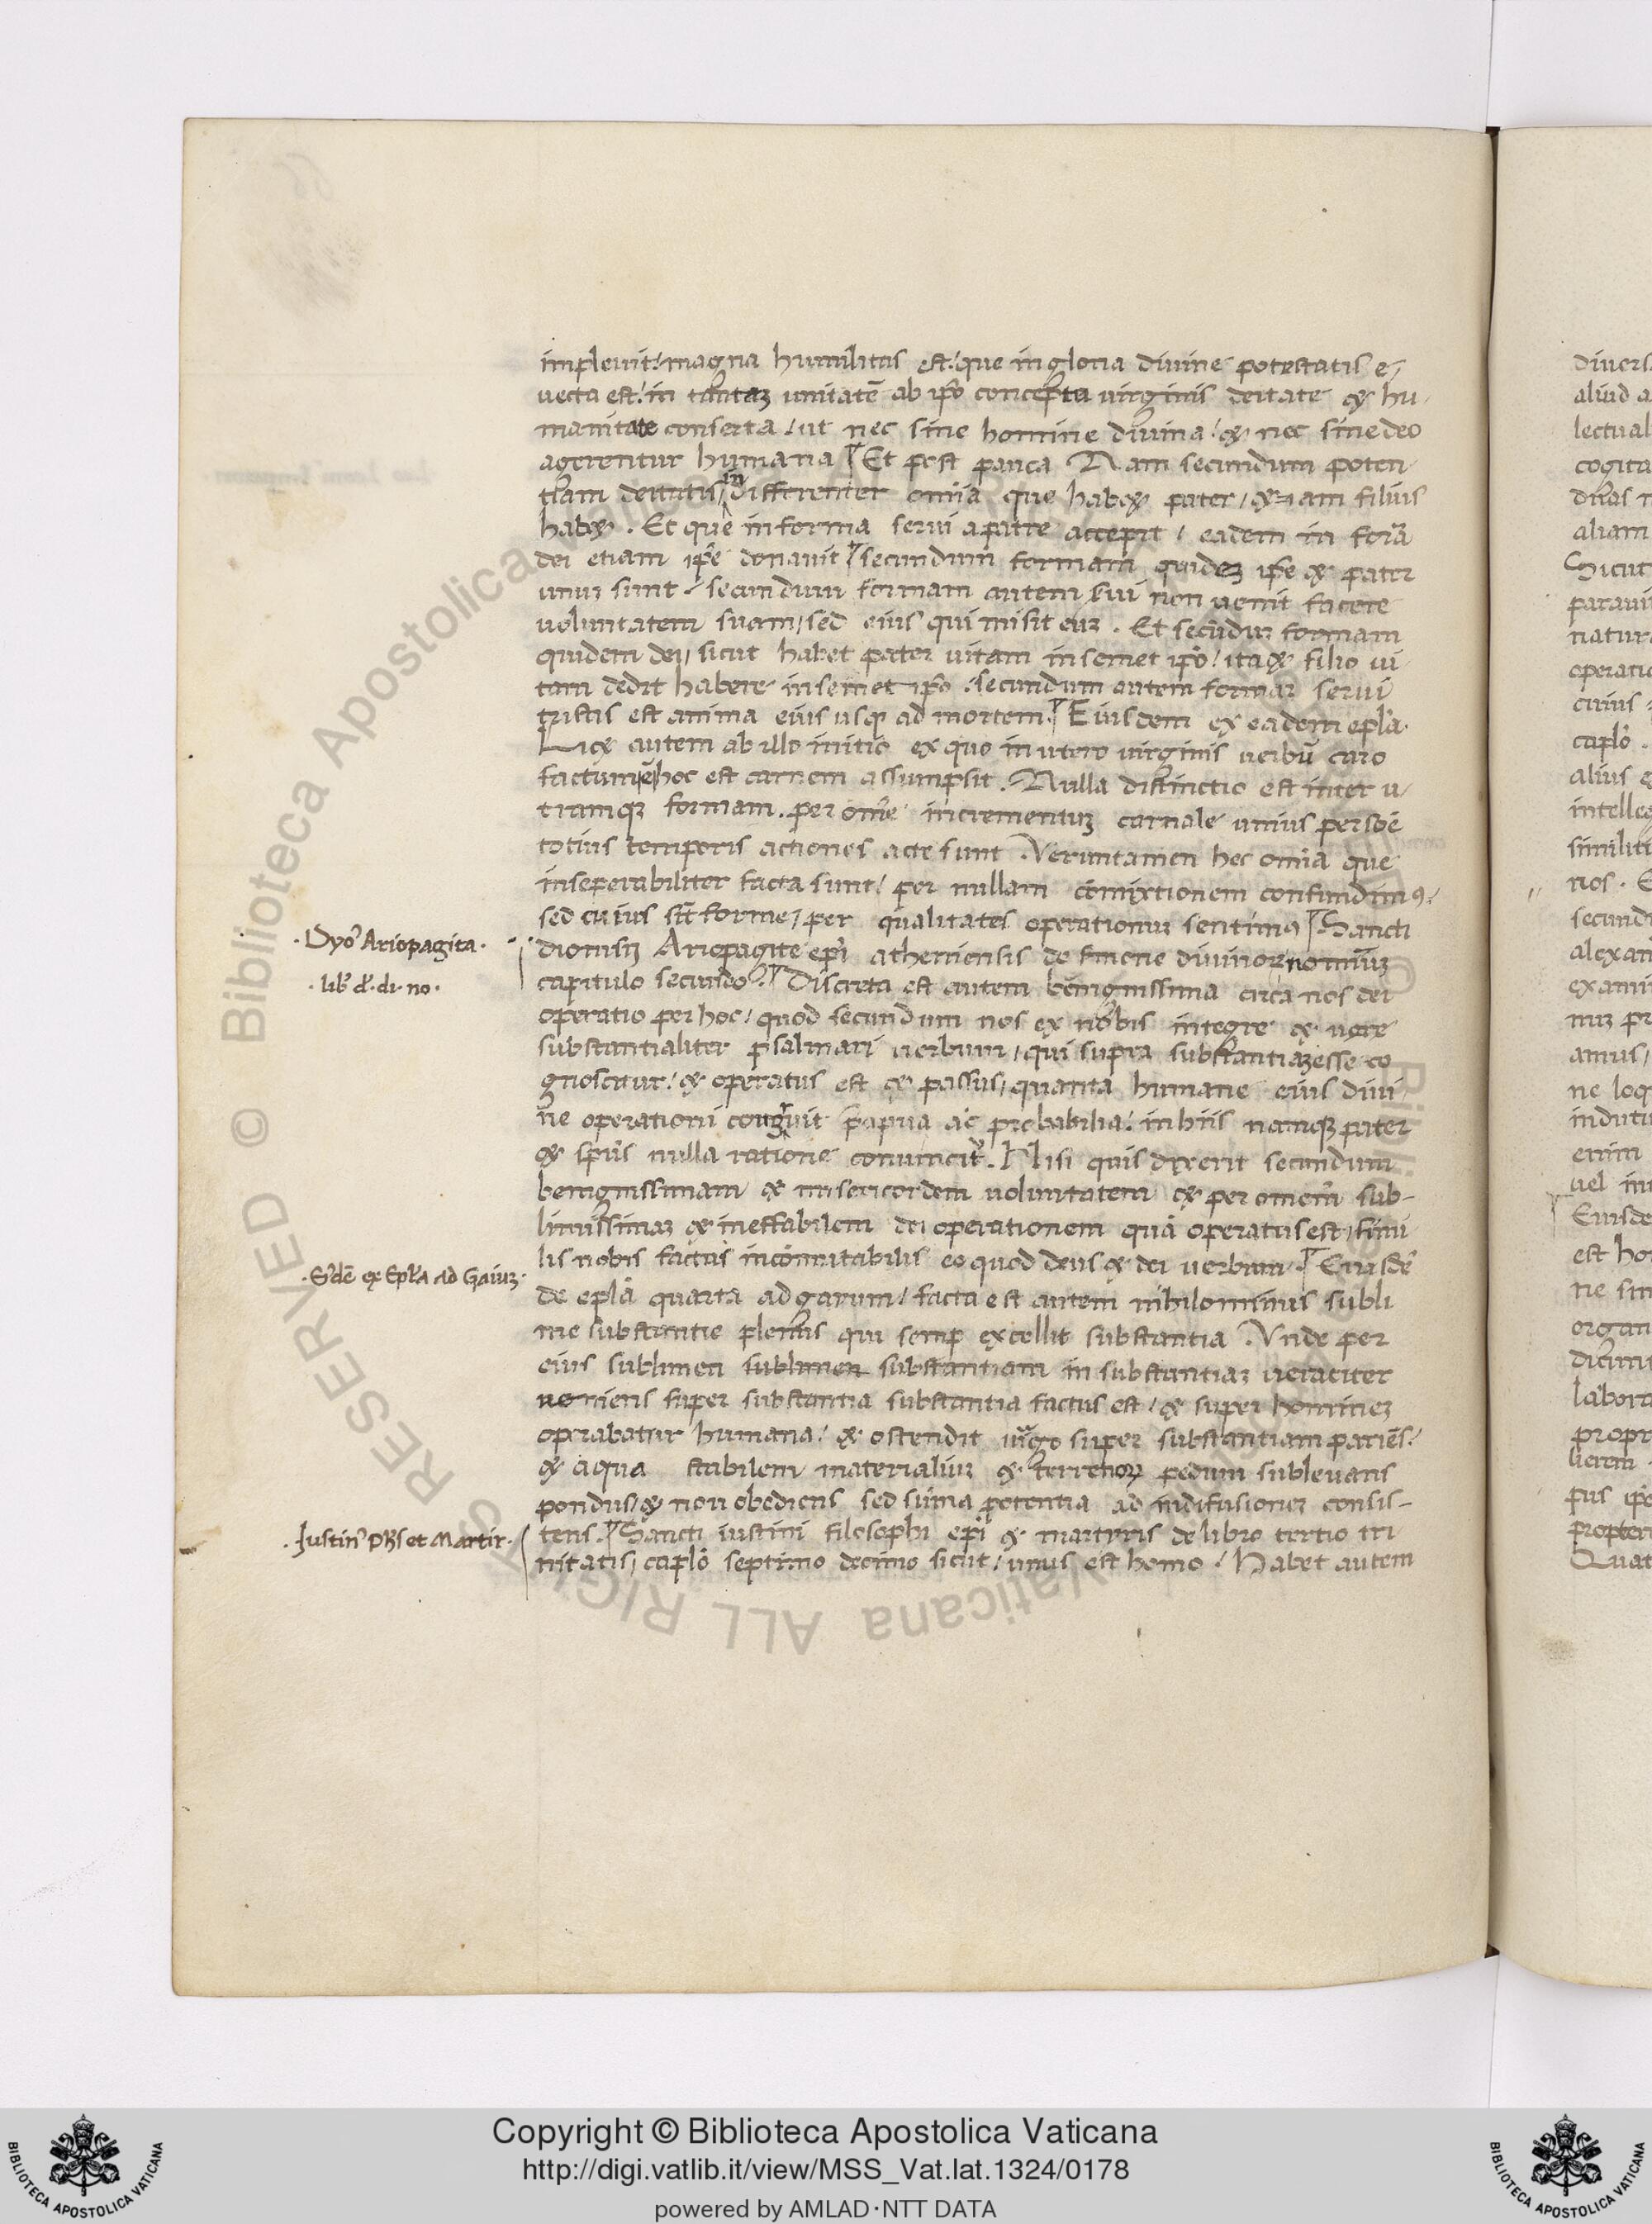 impleuit / magna humilitas est / que in gloria diuine potestatis e-
uecta est / in tantaꝫ unitatē ab ip̄o conceptu uirginis deitate & hu-
manitate conserta / ut nec sine homine diuina / & nec sine deo
agerentur humana ¶ Et post pauca Nam secundum poten-
tiam deitatis / indifferenter om̄ia que habet pater / etiam filius
habet . Et que in forma serui a patre accepit / eadem in form̄a
dei etiam ip̄e donauit ¶ secundum formam quideꝫ ip̄e & pater
unuꝫ sunt / secundum formam autem s̄ui non uenit facere
uoluntatem suam / sed eius qui misit euꝫ . Et secūduꝫ formam
quidem dei / sicut habet pater uitam in semet ip̄o / ita & filio ui-
tam dedit habere in semet ip̄o / secundum autem formaꝫ serui
tristis est anima eius usqꝫ ad mortem ¶ Eiusdem ex eadem ep̄la.
Licet autem ab illo initio ex quo in utero uirginis uerbū caro
factum ē / hoc est carnem assumpsit . Nulla distinctio est inter u-
tramqꝫ formam . per om̄e incrementuꝫ carnale unius persoē
totius temporis actiones acte sunt . Veruntamen hec om̄ia que
inseperabiliter facta sunt / per nullam cōmixtionem confundimꝰ /
sed cuius sīt forme / per qualitates operationuꝫ sentimꝰ ¶ Sancti
dionisij Ariopagite ep̄i atheniensis de diuinoꝝ nominuꝫ
capitulo secundo ¶ Discreta est autem benignissima circa nos dei
operatio per hoc / quod secundum nos ex nobis integre & uere
substantialiter psalmari uerbum / qui supra substantiaꝫ esse co
gnoscitur / & operatus est & passus / quanta humane eius diui-
ne operationi congruit p̄apua ac probabilia / in hiis namqꝫ pater
& sp̄us nulla ratione conuincit̄ . Nisi quis dixerit secundum
benignissimam & misericordem uoluntatem & per omem̄ sub-
limissimaꝫ & ineffabilem dei operationem quā operatus est / simi
lis nobis factus incōmutabilis eo quod deus & dei uerbum ¶ Eiusdē
de ep̄lā quarta ad gayum / facta est autem nihilominus subli
me substantie plenus qui semp̄ excellit substantia . Vnde per
eius sublimen sublimen substantiam in substantiaꝫ ueraciter
ueniens super substantia substantia factus est / & super homineꝫ
operabatur humana / & ostendit uirgo super substantiam pariēs /
& aqua stabilem materialiuꝫ & terrenoꝝ pedum subleuans
pondus / & non obediens sed sūma potentia ad indifusioneꝫ consis-
tens . ¶ Sancti iustini filosophi ep̄i & martyris de libro tertio tri
nitatis / cap̄lo septimo decimo sicut / unus est homo / Habet autem
· Dyo͛ Ariopagita ·
· lib͛ d͛ · di · no ·
· Eͥdē ex Ep̄la ad Gaiuꝫ ·
· Justin͛ Ph̄s et Martir ·
Copyright © Biblioteca Apostolica Vaticana
http://digi.vatlib.it/view/MSS_Vat.lat.1324/0178
powered by AMLAD·NTT DATA
BIBLIOTECA APOSTOLICA VATICANA
BIBLIOTECA APOSTOLICA VATICANA